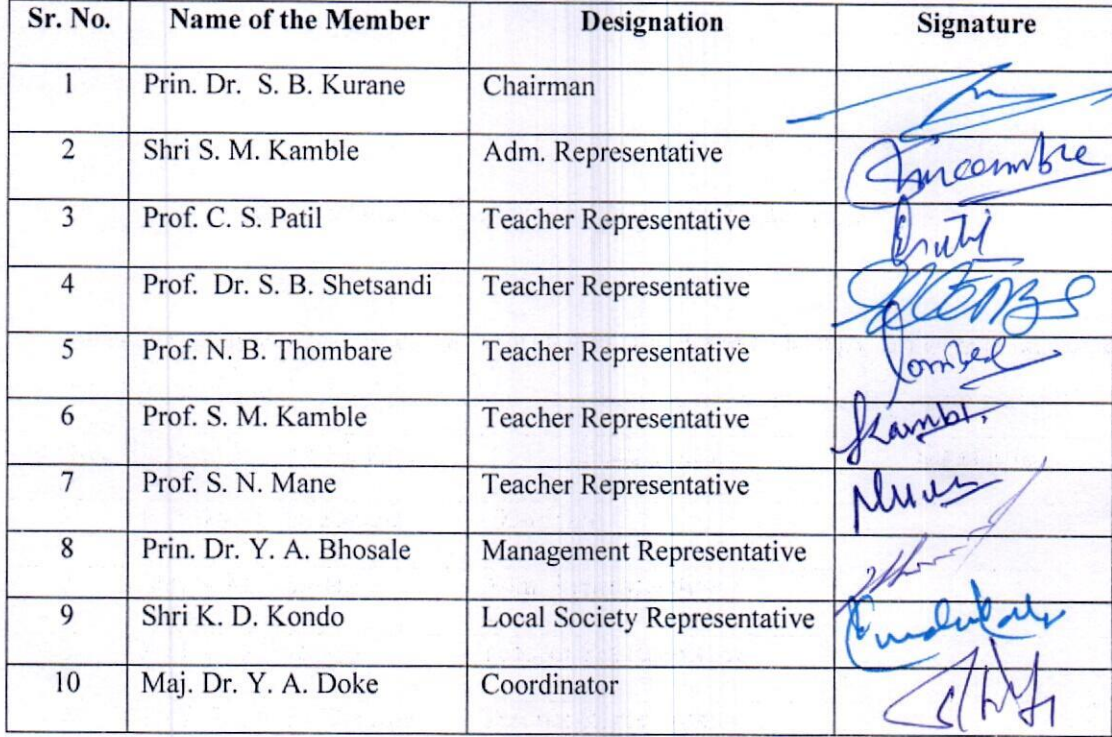 Sr. No. Name of the Member Designation Signature
1 Prin. Dr. S. B. Kurane Chairman
2 Shri S. M. Kamble Adm. Representative
3 Prof. C. S. Patil Teacher Representative
4 Prof. Dr. S. B. Shetsandi Teacher Representative
5 Prof. N. B. Thombare Teacher Representative
6 Prof. S. M. Kamble Teacher Representative
7 Prof. S. N. Mane Teacher Representative
8 Prin. Dr. Y. A. Bhosale Management Representative
9 Shri K. D. Kondo Local Society Representative
10 Maj. Dr. Y. A. Doke Coordinator